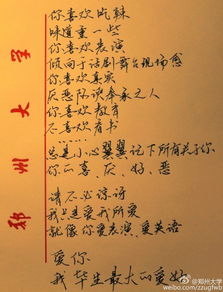 你喜欢吃辣
味道重一些
你喜欢表演
倾向于话剧舞台现场感
你喜欢真实
厌恶阿谀奉承之人
你喜欢教育
尽喜欢看书
……
总是小心翼翼记下所有关于你
你的喜、厌、好、恶
请不必惊讶
我只是爱我所爱
就像你爱表演、爱英语
爱你
我毕生最大的爱好
郑州大学
@郑州大学
weibo.com/zzugfwb